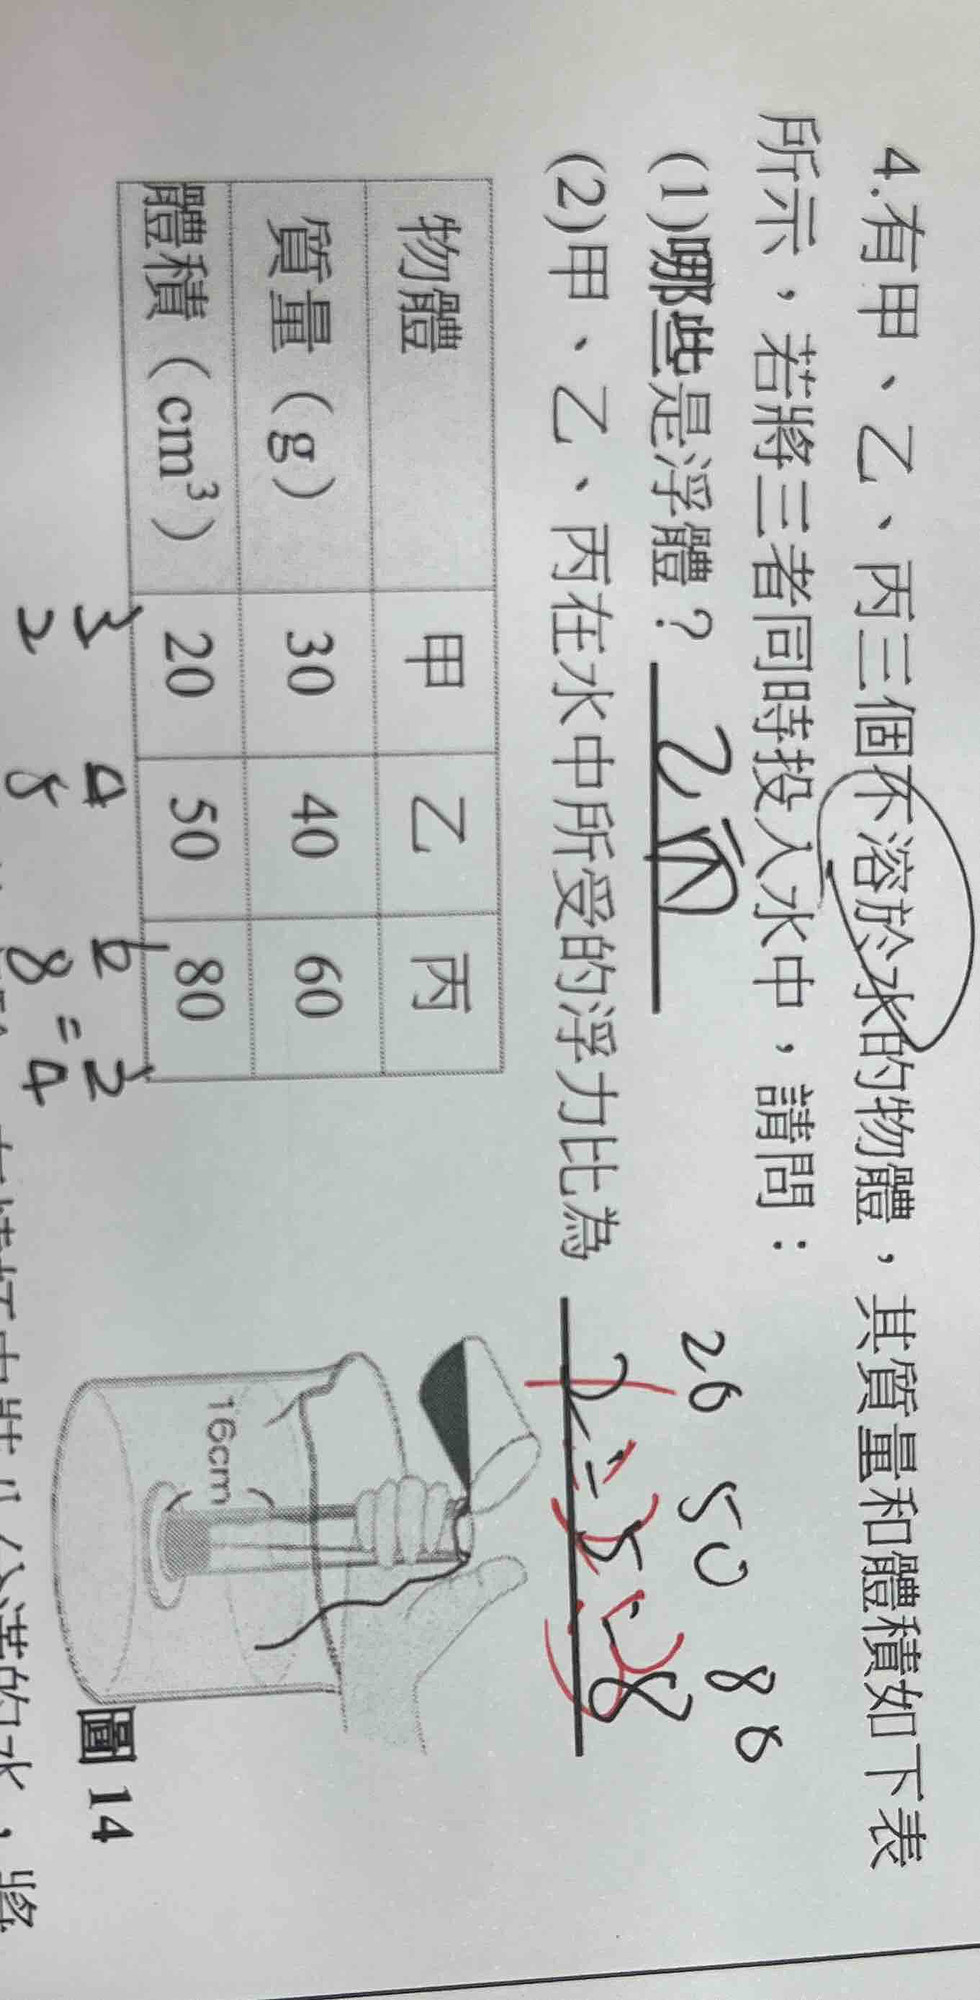 4.有甲、乙、丙三個不溶於水的物體，其質量和體積如下表
所示，若將三者同時投入水中，請問：
(1)哪些是浮體？ 乙丙
20 50 80
(2)甲、乙、丙在水中所受的浮力比為 2:5:8
物體 甲 乙 丙
質量（g） 30 40 60
體積（cm³） 20 50 80
3 4 6 3
2 5 8 = 4
16cm
圖 14